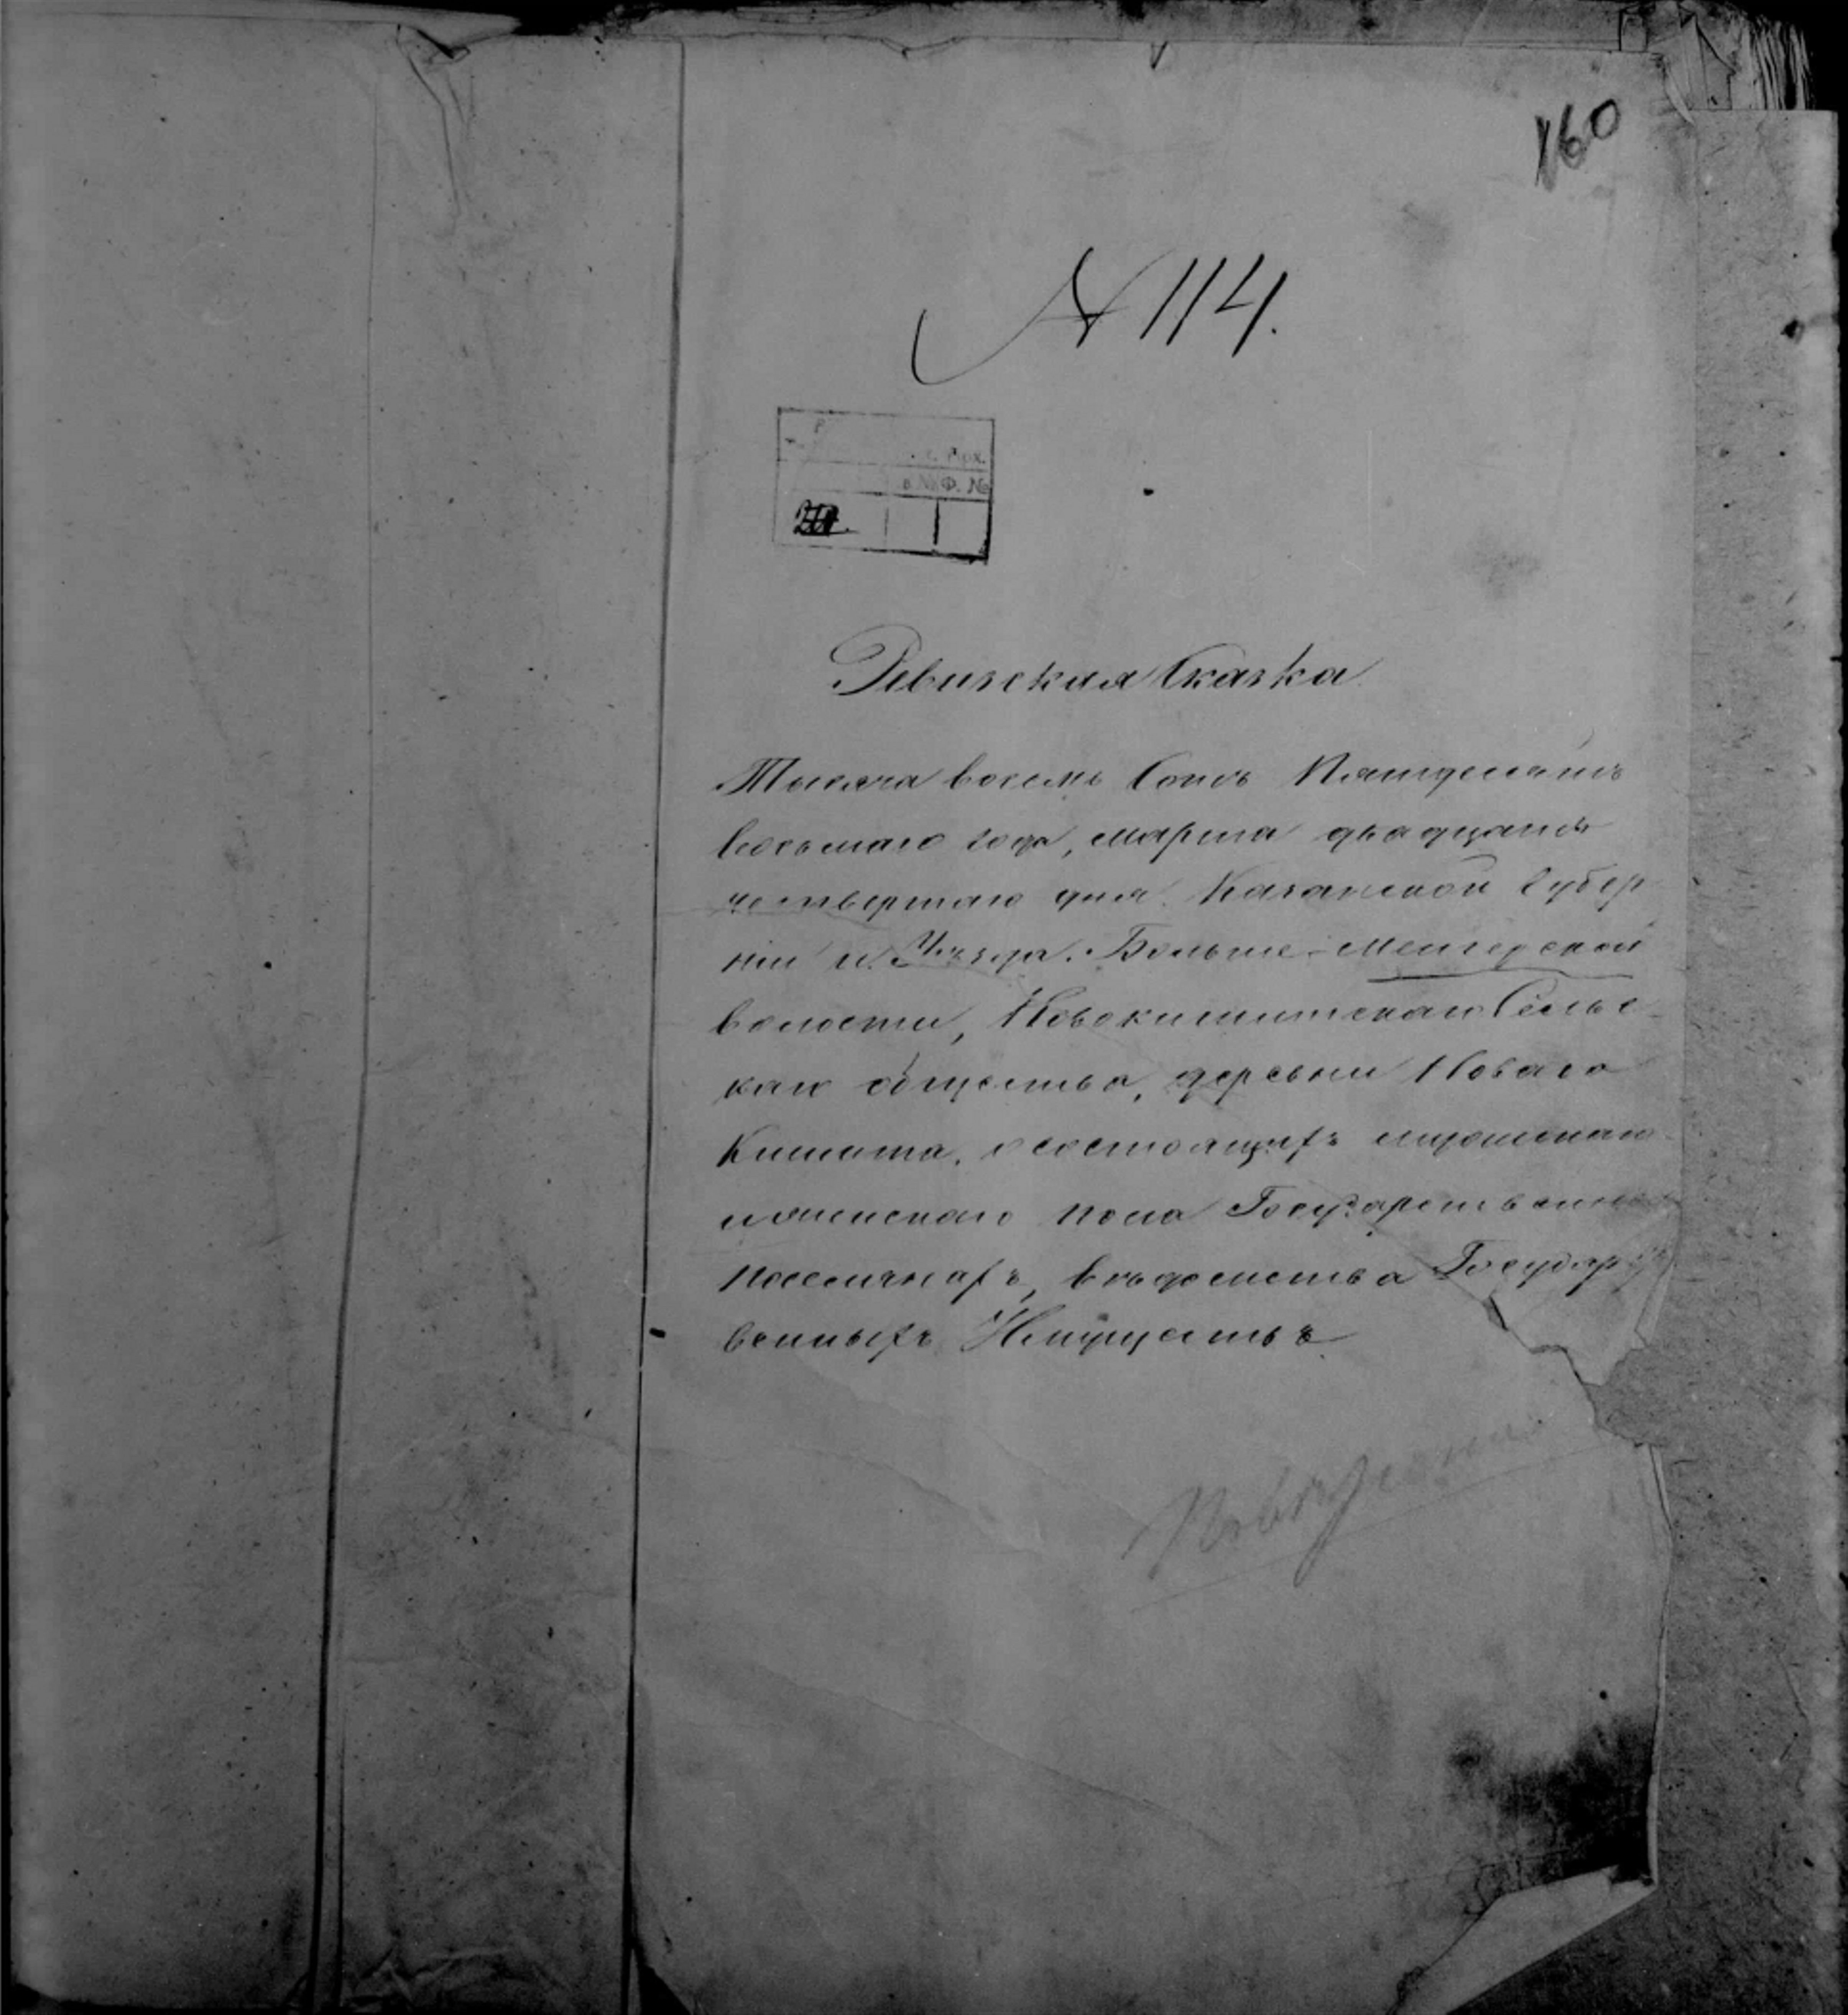 160
№ 114.
Арх.
Ф. №
Ревизская Сказка
Тысяча восемь Сотъ Пятьдесятъ
восьмаго года, марта двадцать
четвертаго дня. Казанской Губер
ніи и Уѣзда. Больше-Менгерской
волости, Новокишитскаго Сельс
каго общества, деревни Новаго
Кишита, о состоящихъ мужескаго
и женскаго пола Государственныхъ
поселянахъ, вѣдомства Государст
венныхъ Имуществъ